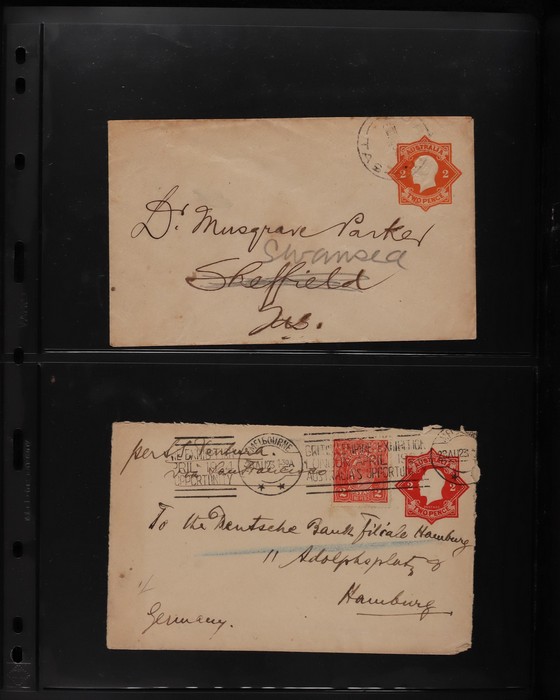 TAS
AUSTRALIA
2 2
TWO PENCE
Dr. Musgrave Parker
Swansea
Sheffield
Tas.
MELBOURNE
BRITISH EMPIRE EXHIBITION
AUSTRALIA'S OPPORTUNITY
OPPORTUNITY
pers. S. Ventura.
via San Francisco
2 2
AUSTRALIA
2 2
TWO PENCE
To the Deutsche Bank Filiale Hamburg
11 Adolphsplatz
Hamburg
Germany.